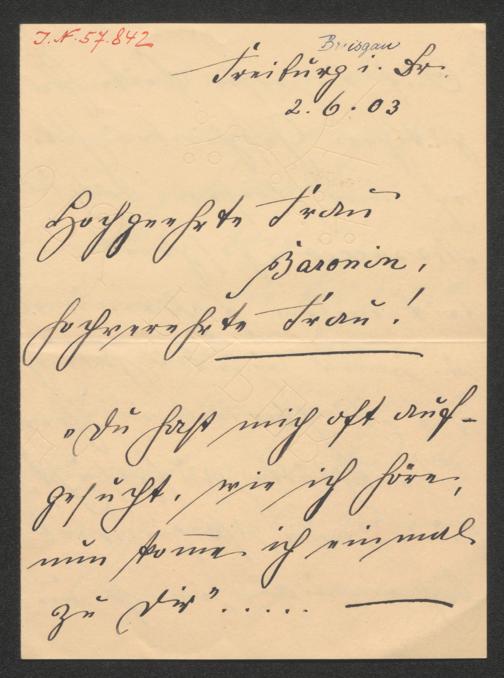 J. N. 57.842
Breisgau
Freiburg i. Br.
2. 6. 03
Hochgeehrte Frau
Baronin,
hochverehrte Frau!
„Du hast mich oft auf-
gesucht, wie ich höre,
nun kom̅e ich einmal
zu Dir“.....